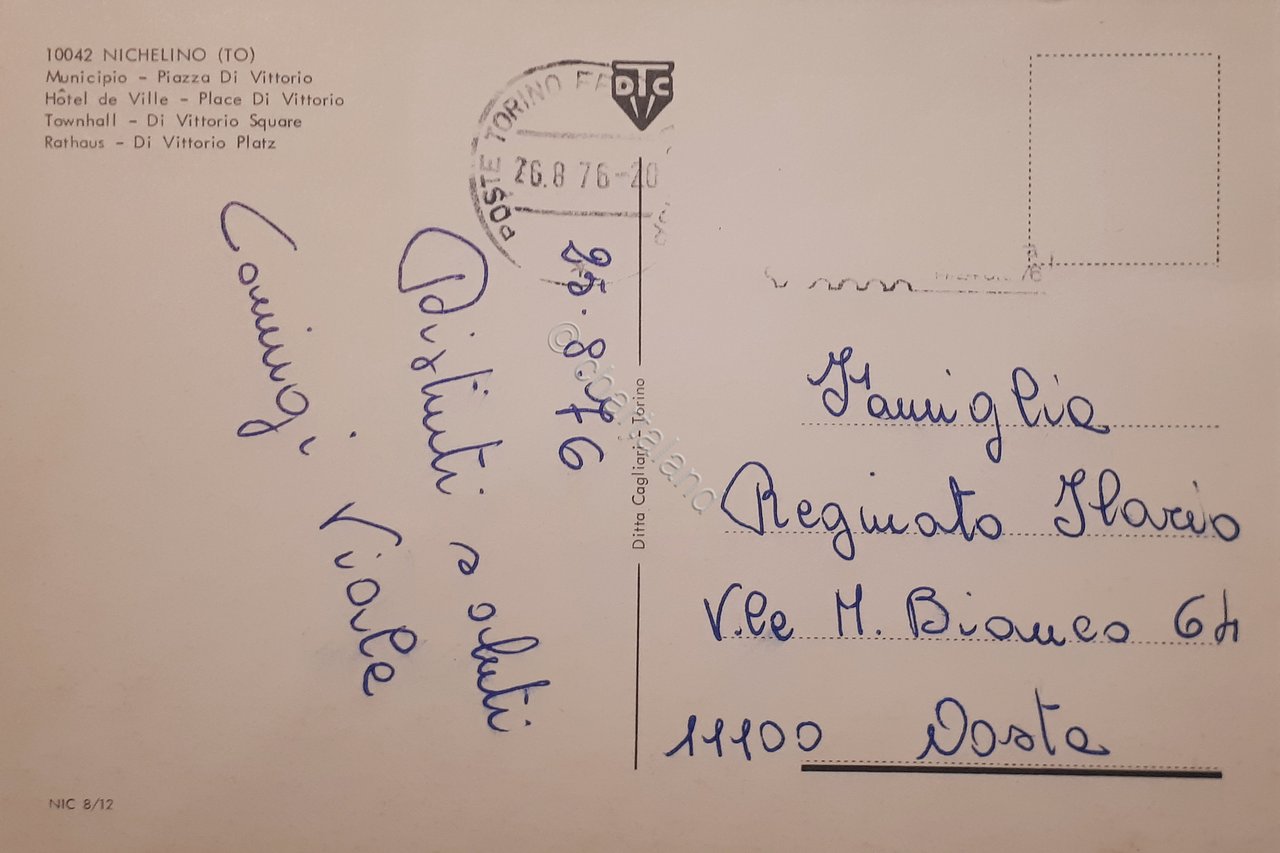 10042 NICHELINO (TO)
Municipio - Piazza Di Vittorio
Hôtel de Ville - Place Di Vittorio
Townhall - Di Vittorio Square
Rathaus - Di Vittorio Platz
POSTE TORINO
26.8 76-20
DTC
25.8.76
Distinti saluti
Viale
Ditta Cagliari - Torino
Famiglia
Reginato Ilario
V.le M. Bianco 64
11100 Aosta
NIC 8/12